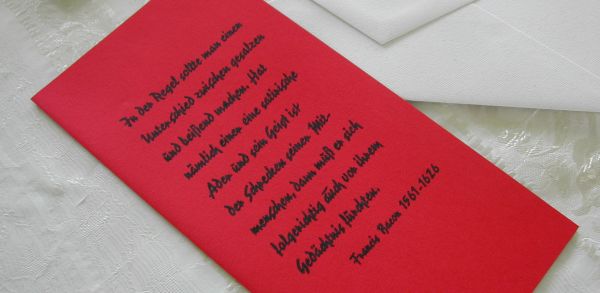 In der Regel sollte man einen
Unterschied zwischen gesalzen
und beißend machen. Hat
nämlich einer eine satirische
Ader und sein Geist ist
der Schrecken seiner Mit-
menschen, dann muß er sich
folgerichtig auch vor ihrem
Gedächtnis fürchten.
Francis Bacon 1561-1626